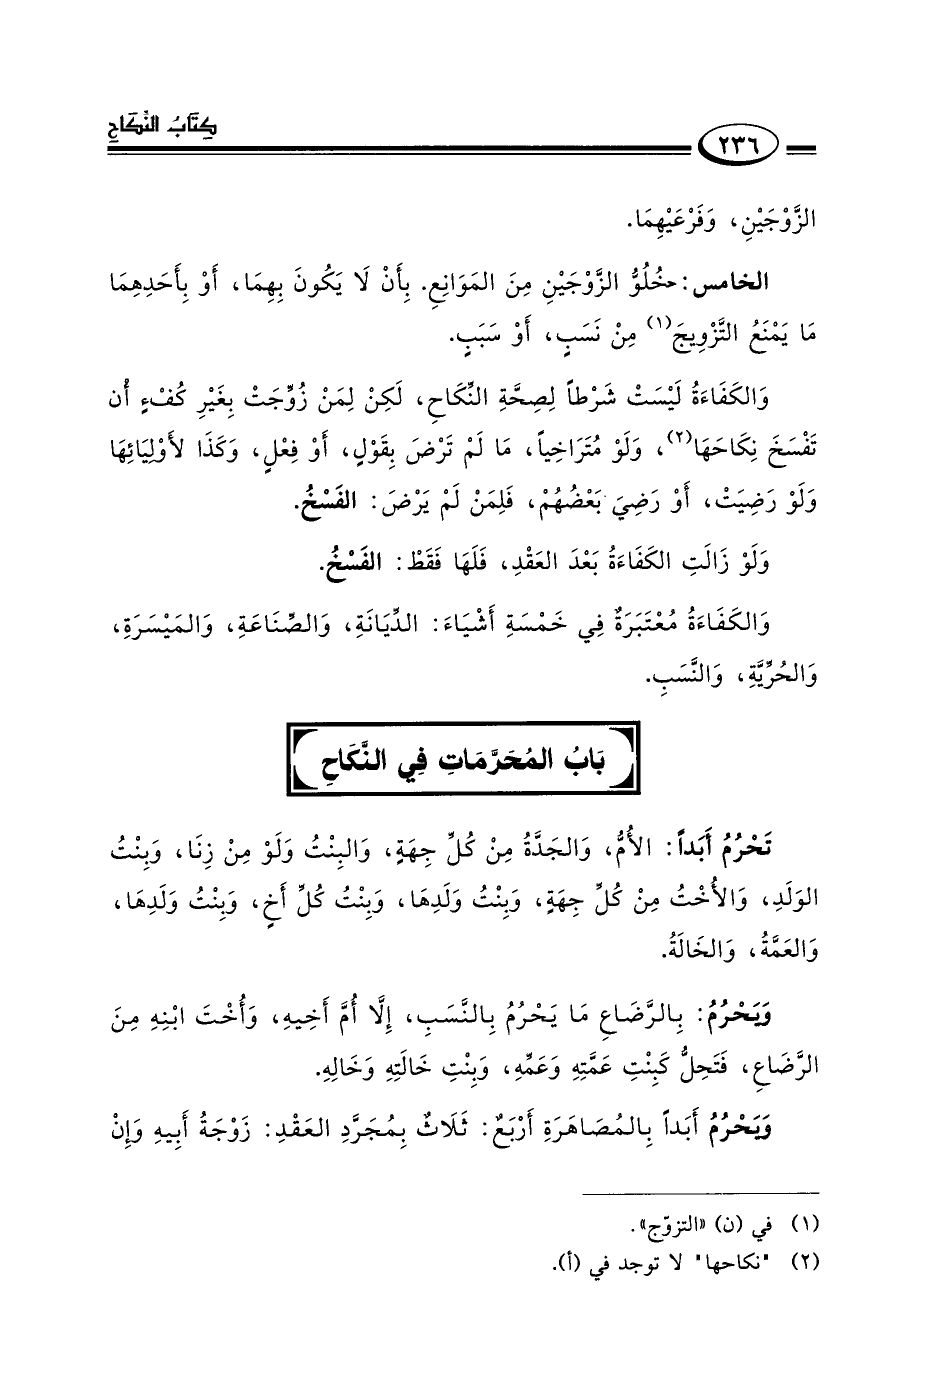 كِتَابُ النِّكَاحِ
٢٣٦
الزَّوْجَيْنِ، وَفَرْعَيْهِمَا.
الخامس: خُلُوُّ الزَّوْجَيْنِ مِنَ المَوَانِعِ. بِأَنْ لَا يَكُونَ بِهِمَا، أَوْ بِأَحَدِهِمَا
مَا يَمْنَعُ التَّزْوِيجَ(١) مِنْ نَسَبٍ، أَوْ سَبَبٍ.
وَالكَفَاءَةُ لَيْسَتْ شَرْطاً لِصِحَّةِ النِّكَاحِ، لَكِنْ لِمَنْ زُوِّجَتْ بِغَيْرِ كُفْءٍ أَن
تَفْسَخَ نِكَاحَهَا(٢)، وَلَوْ مُتَرَاخِياً، مَا لَمْ تَرْضَ بِقَوْلٍ، أَوْ فِعْلٍ، وَكَذَا لأَوْلِيَائِهَا
وَلَوْ رَضِيَتْ، أَوْ رَضِيَ بَعْضُهُمْ، فَلِمَنْ لَمْ يَرْضَ: الفَسْخُ.
وَلَوْ زَالَتِ الكَفَاءَةُ بَعْدَ العَقْدِ، فَلَهَا فَقَطْ: الفَسْخُ.
وَالكَفَاءَةُ مُعْتَبَرَةٌ فِي خَمْسَةِ أَشْيَاءَ: الدِّيَانَةِ، وَالصِّنَاعَةِ، وَالمَيْسَرَةِ،
وَالحُرِّيَّةِ، وَالنَّسَبِ.
بَابُ المُحَرَّمَاتِ فِي النِّكَاحِ
تَحْرُمُ أَبَداً: الأُمُّ، وَالجَدَّةُ مِنْ كُلِّ جِهَةٍ، وَالبِنْتُ وَلَوْ مِنْ زِنَا، وَبِنْتُ
الوَلَدِ، وَالأُخْتُ مِنْ كُلِّ جِهَةٍ، وَبِنْتُ وَلَدِهَا، وَبِنْتُ كُلِّ أَخٍ، وَبِنْتُ وَلَدِهَا،
وَالعَمَّةُ، وَالخَالَةُ.
وَيَحْرُمُ: بِالرَّضَاعِ مَا يَحْرُمُ بِالنَّسَبِ، إِلَّا أُمَّ أَخِيهِ، وَأُخْتَ ابْنِهِ مِنَ
الرَّضَاعِ، فَتَحِلُّ كَبِنْتِ عَمَّتِهِ وَعَمِّهِ، وَبِنْتِ خَالَتِهِ وَخَالِهِ.
وَيَحْرُمُ أَبَداً بِالمُصَاهَرَةِ أَرْبَعٌ: ثَلَاثٌ بِمُجَرَّدِ العَقْدِ: زَوْجَةُ أَبِيهِ وَإِنْ
(١) في (ن) «التزوّج».
(٢) "نكاحها" لا توجد في (أ).